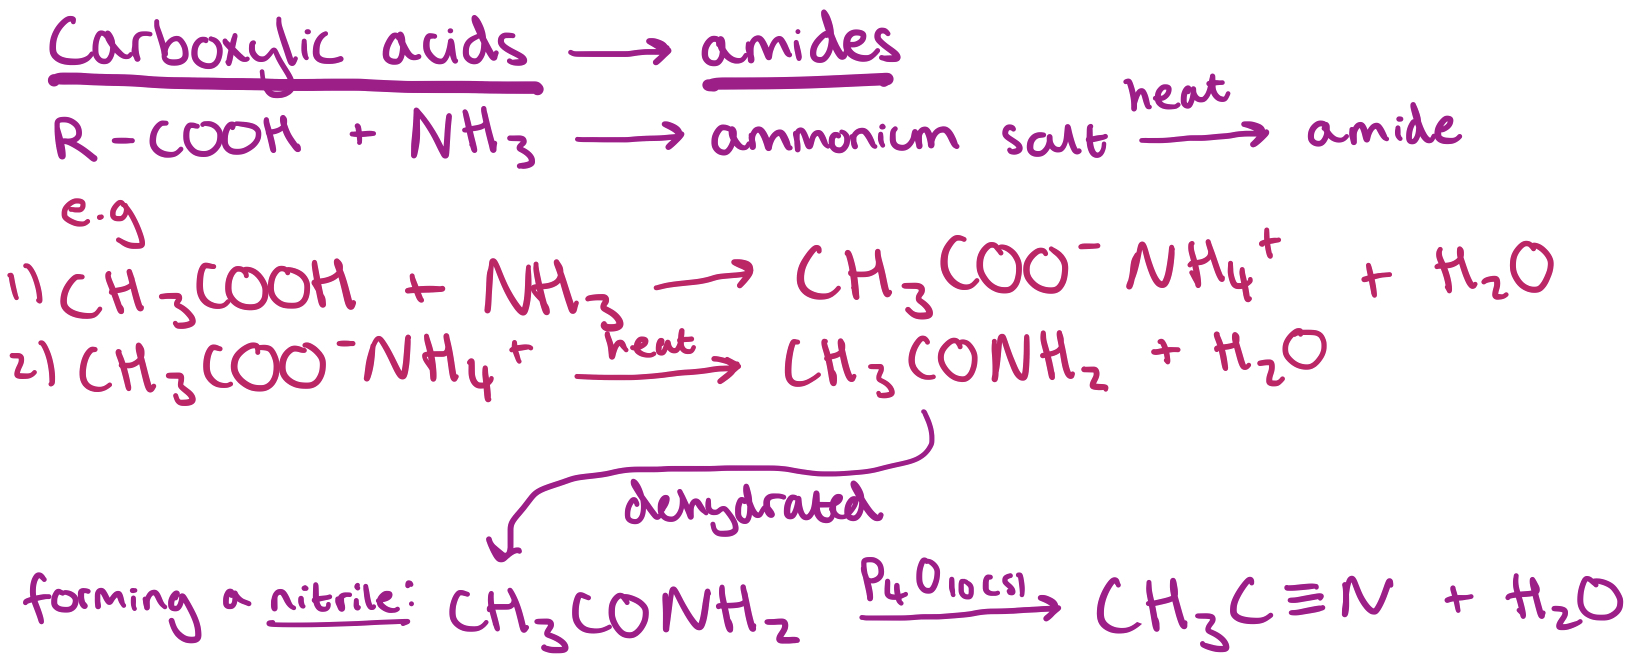 Carboxylic acids → amides
R - COOH + NH₃ → ammonium salt heat → amide
e.g
1) CH₃COOH + NH₃ → CH₃COO⁻ NH₄⁺ + H₂O
2) CH₃COO⁻NH₄⁺ heat → CH₃CONH₂ + H₂O
dehydrated
forming a nitrile: CH₃CONH₂ P₄O₁₀(s) → CH₃C≡N + H₂O